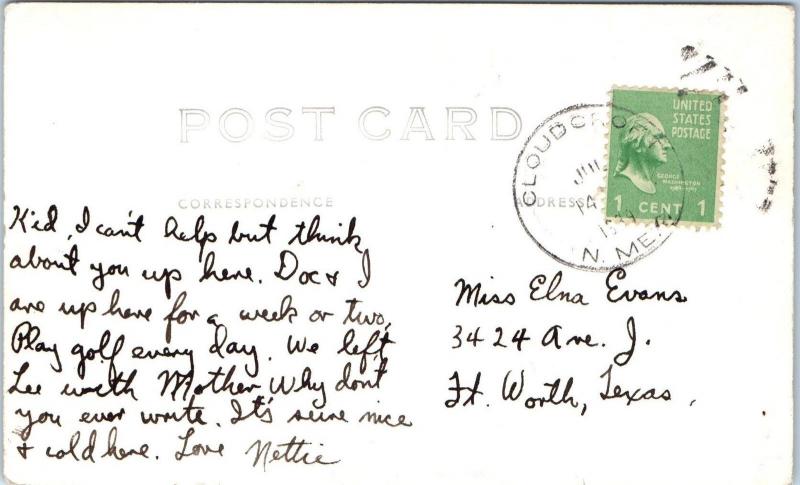 POST CARD
CORRESPONDENCE
ADDRESS
CLOUDCROFT
JUL
14
1939
N. MEX.
UNITED
STATES
POSTAGE
GEORGE
WASHINGTON
1 CENT 1
Kid, I can't help but think
about you up here. Doc & I
are up here for a week or two,
Play golf every day. We left
Lee with Mother Why don't
you ever write. It's sure nice
& cold here. Love Nettie
Miss Elna Evans
3424 Ave. J.
Ft. Worth, Texas.